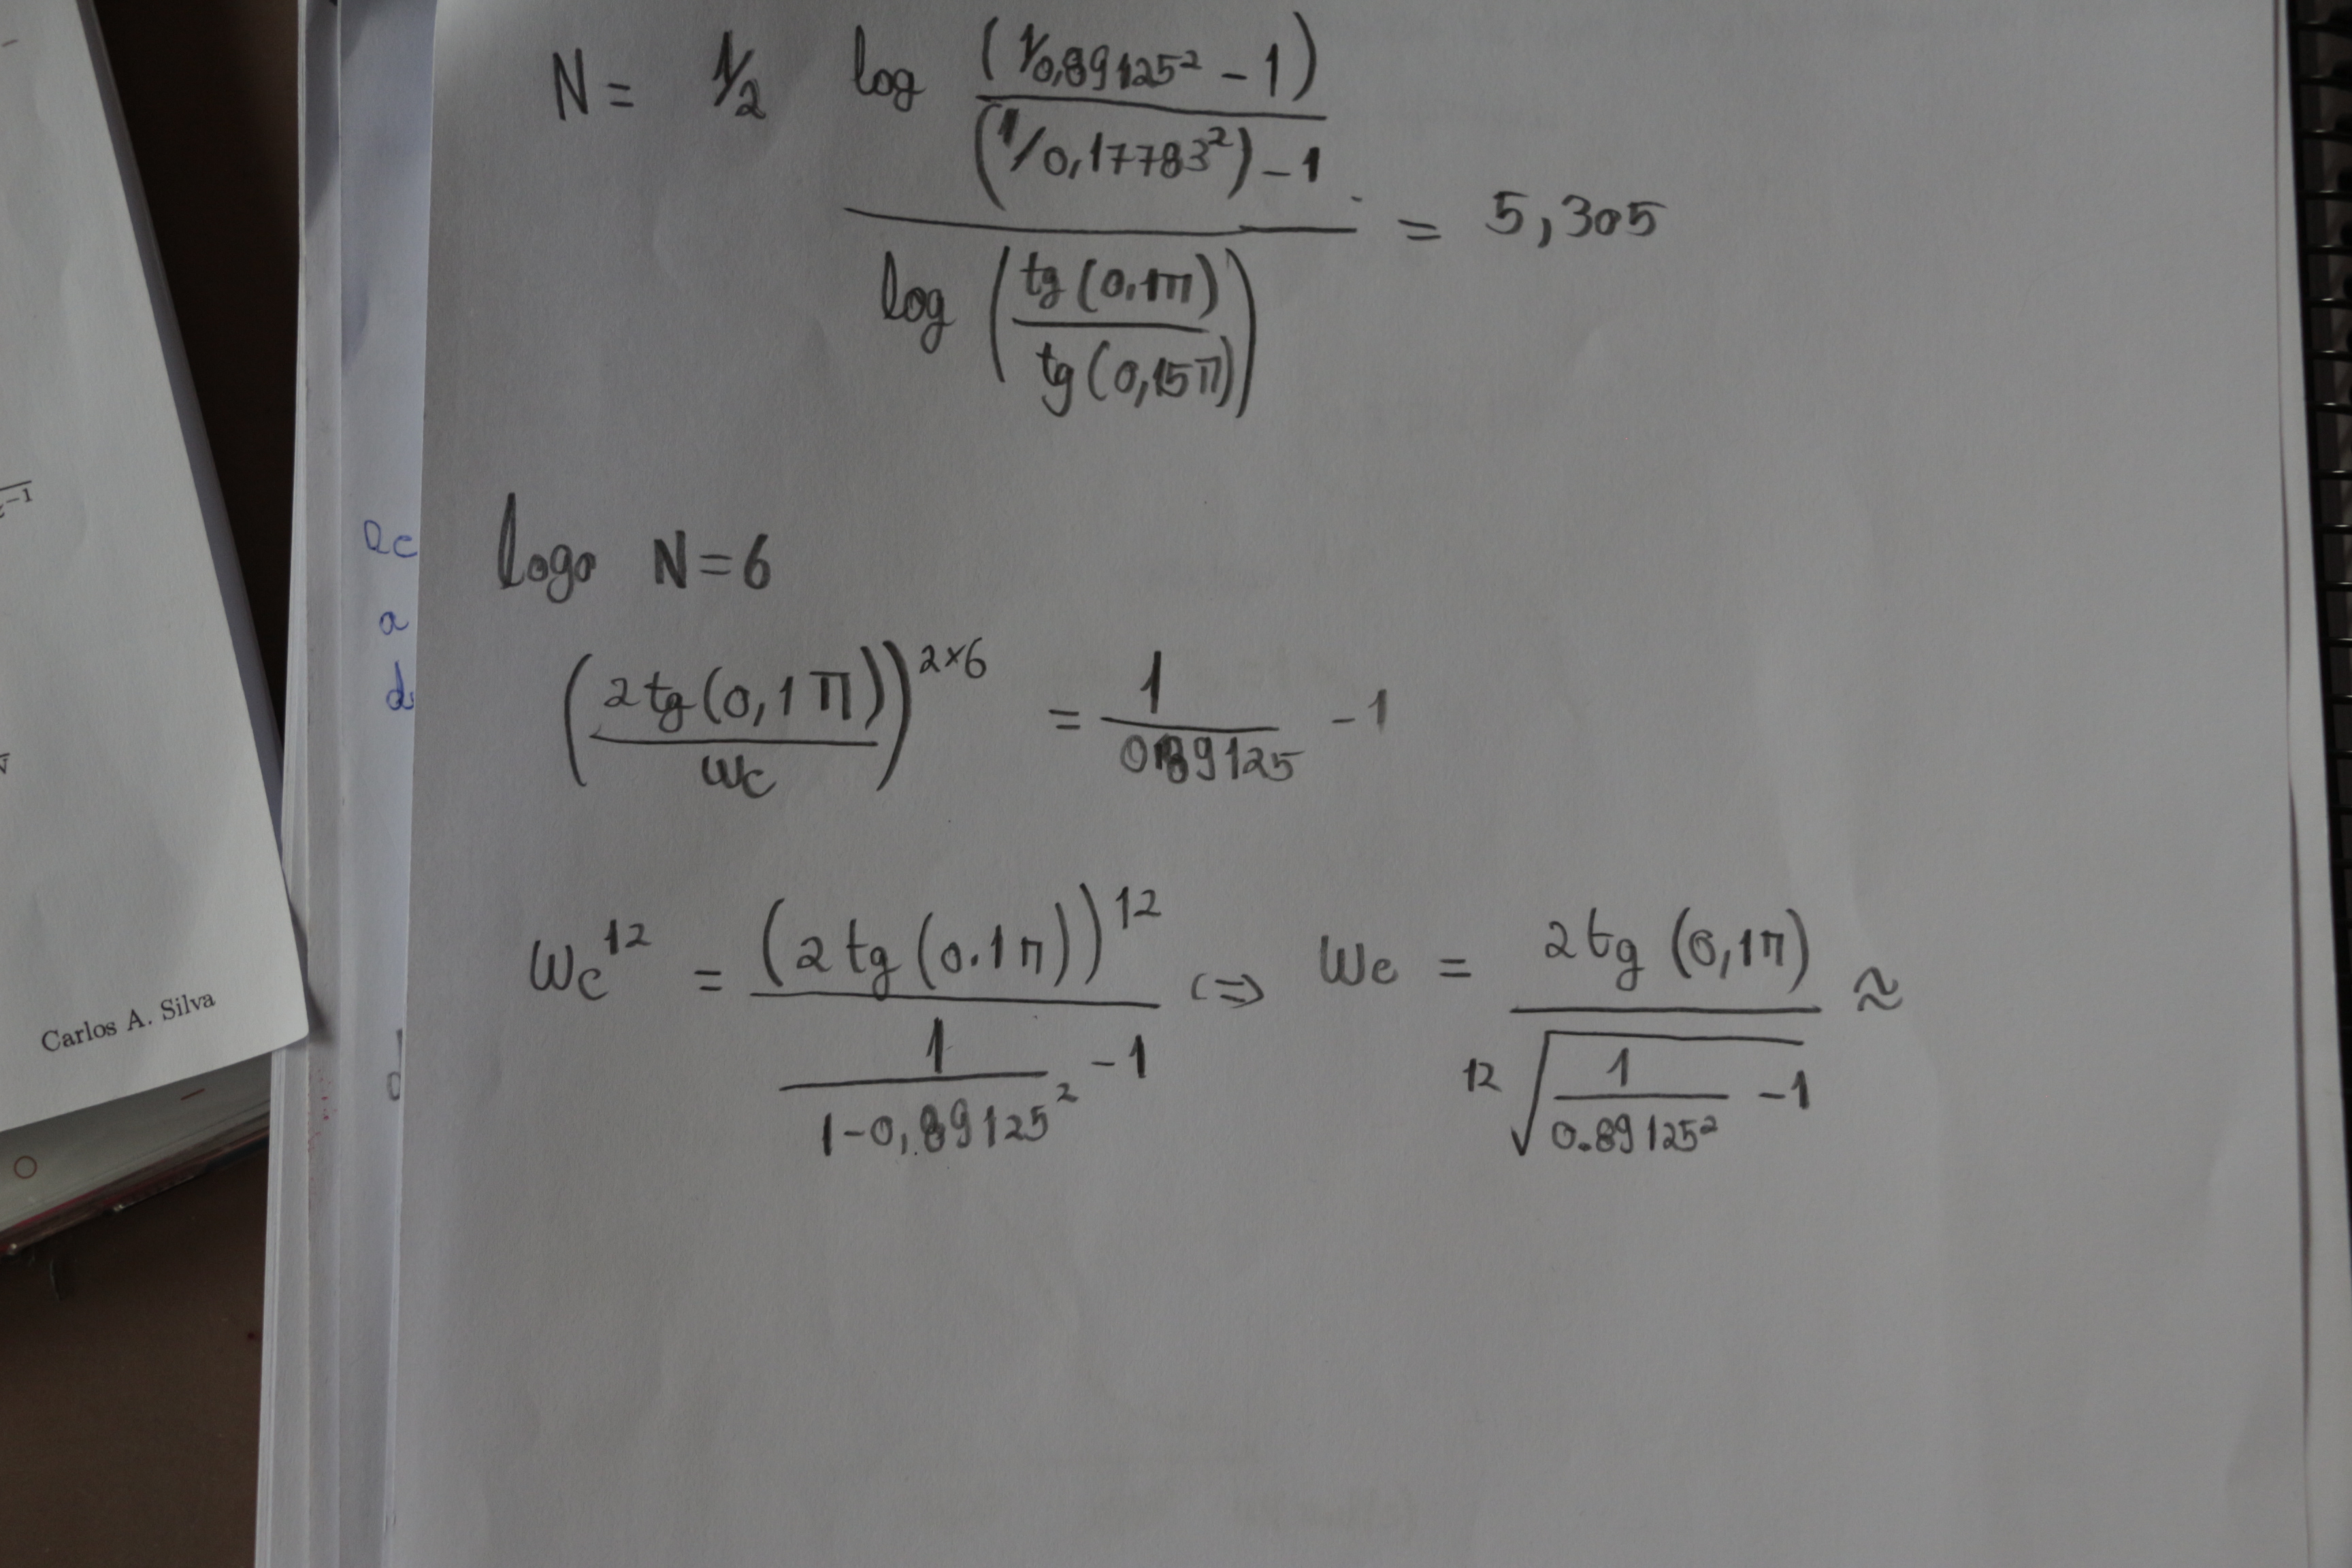 N = 1/2 log (1/0,89125² - 1)
(1/0,17783²) - 1
= 5,305
log (tg (0,1π)
tg (0,15π))
z⁻¹
logo N=6
(2 tg (0,1 π)
ωc)^2×6 = 1
0,89125 - 1
ωc^12 = (2 tg (0.1π))^12
1
1-0,89125² - 1
<=> ωc = 2 tg (0,1π)
12√ 1
0.89125² - 1
≈
Carlos A. Silva